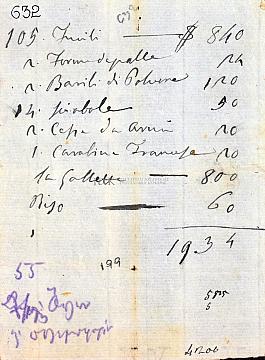 632
105. Fucili — $ 840
2. Forme da palle 24
2. Barili di Polvere 120
14. Sciabole 50
2. Casse da Armi 20
1. Carabina Francese 20
La Gallette — 800
Riso — 60
1934
55
199
555
5
4200